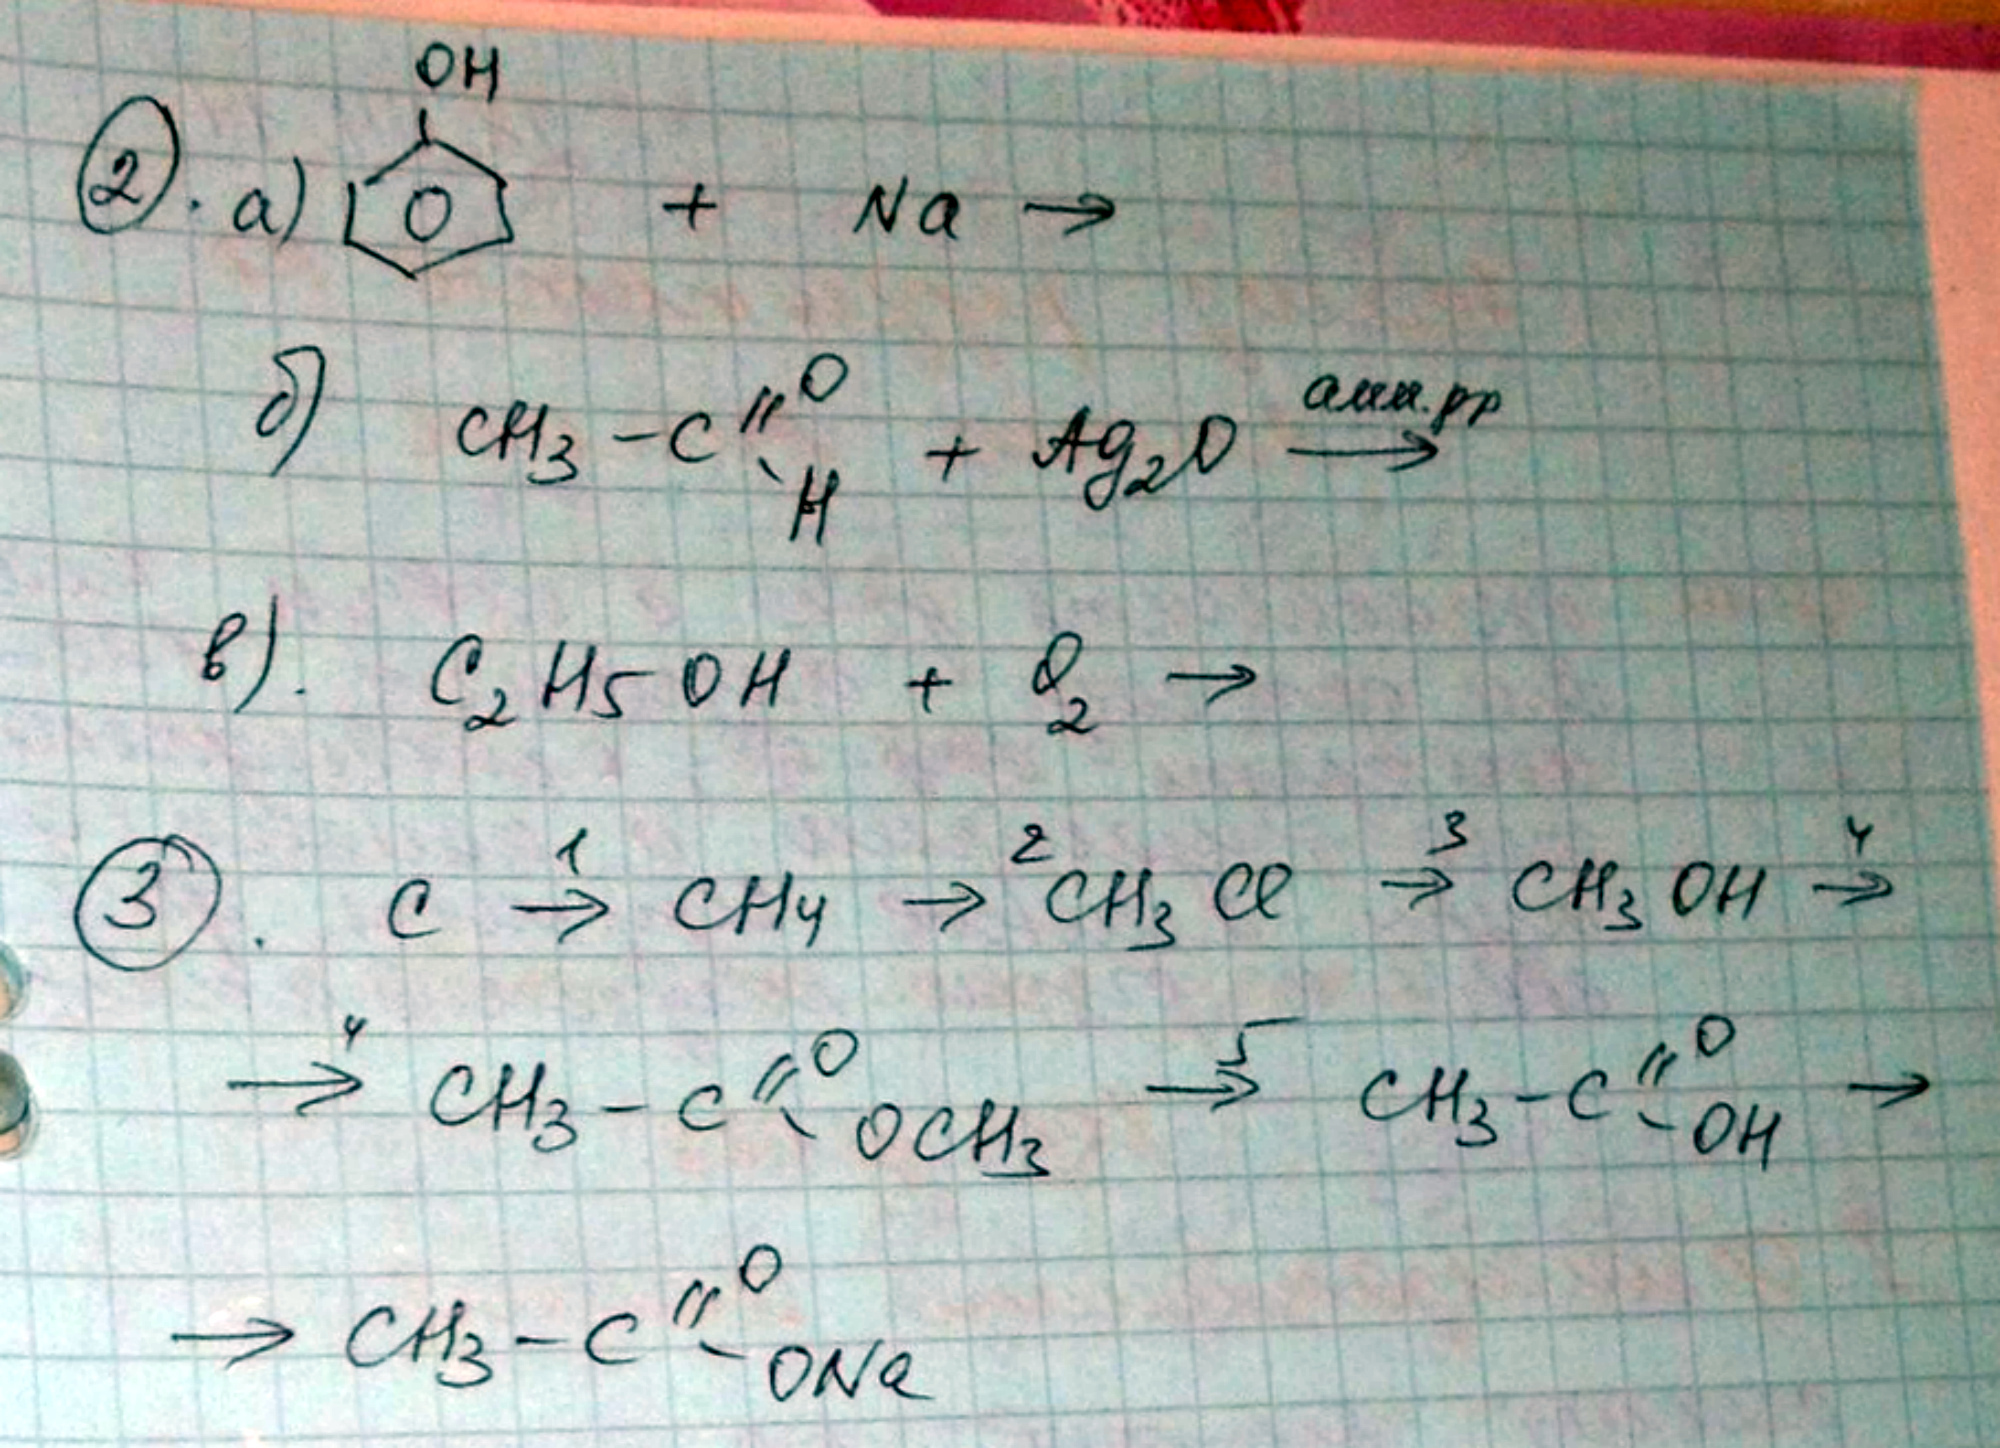 OH
2. а) + Na →
б) CH₃ – C =O H + Ag₂O → амм. рр
в). C₂H₅OH + O₂ →
3. C →¹ CH₄ →² CH₃Cl →³ CH₃OH →⁴
→⁴ CH₃ – C =O OCH₃ →⁵ CH₃ – C =O OH →
→ CH₃ – C =O ONa